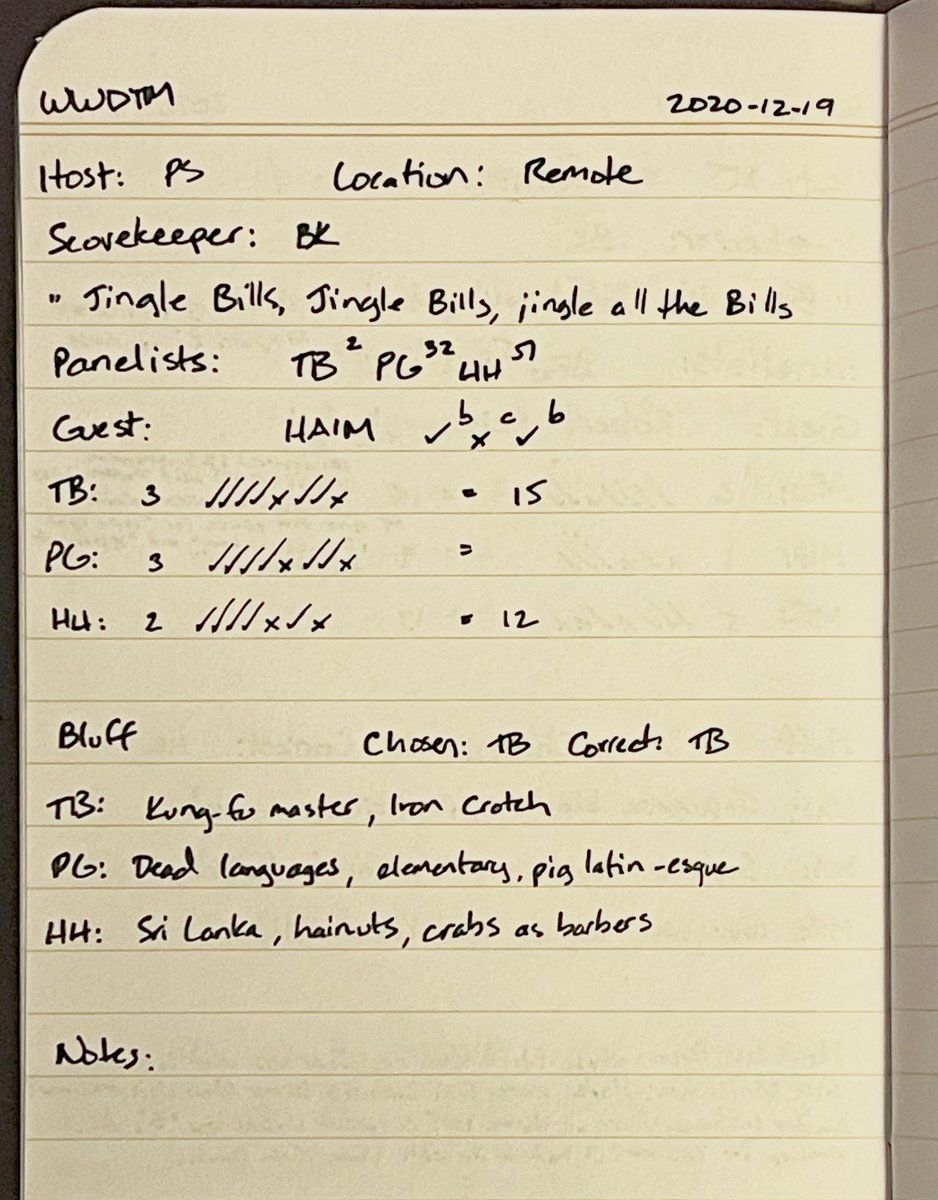 WWDTM 2020-12-19
Host: PS Location: Remote
Scorekeeper: BK
" Jingle Bills, Jingle Bills, jingle all the Bills
Panelists: TB 2 PG 32 HH 51
Guest: HAIM ✓ b x c ✓ b
TB: 3 ✓✓✓✓x✓✓x = 15
PG: 3 ✓✓✓✓x✓✓x =
HH: 2 ✓✓✓✓x✓x = 12
Bluff Chosen: TB Correct: TB
TB: Kung-fu master, Iron Crotch
PG: Dead languages, elementary, pig latin-esque
HH: Sri Lanka, haircuts, crabs as barbers
Notes: